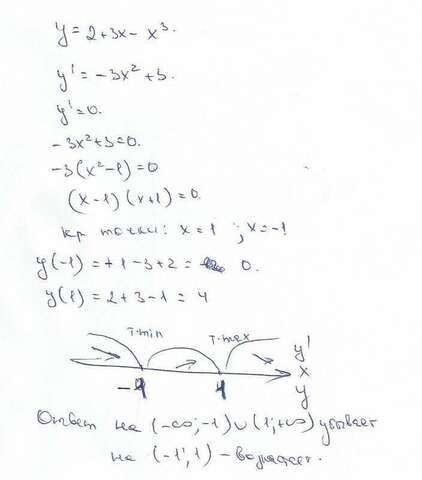 y = 2+3x - x³.
y' = -3x²+3.
y'=0.
-3x²+3=0.
-3(x²-1)=0
(x-1)(x+1)=0.
кр точки: x=1 ; x=-1
y(-1)=+1-3+2= 0.
y(1)=2+3-1=4
т.min т.max y'
x
-1 1 y
Ответ на (-∞;-1)∪(1;+∞) убывает
на (-1;1) - возрастает.